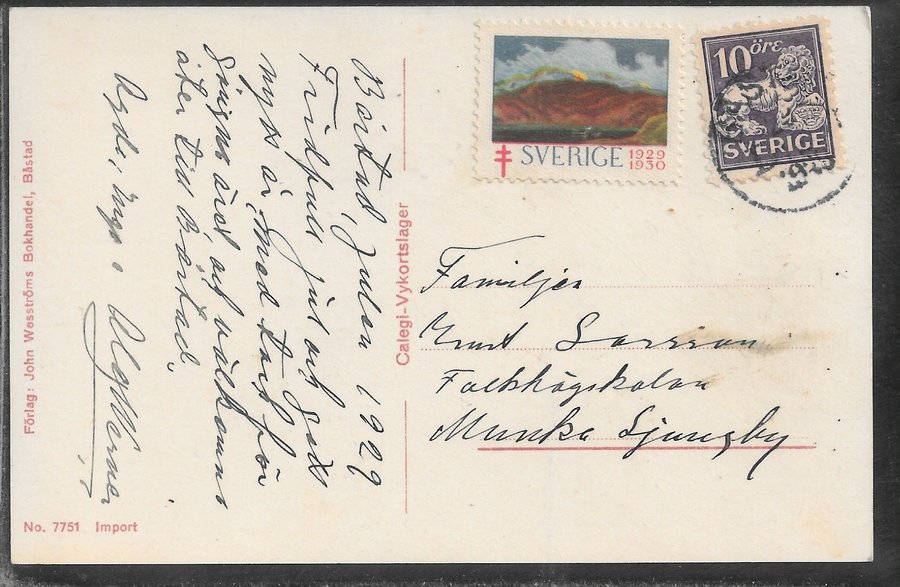 Båstad, Julen 1929
Fridfull jul och gott
nytt år, med tack för
året och välkomna
åter till Båstad.
Lyde, Inga o
SVERIGE 1929
1930
10 öre
SVERIGE
Familjen
Ernst Larsson
Folkhögskolan
Munka Ljungby
Calegi-Vykortslager
Förlag: John Wesströms Bokhandel, Båstad
No. 7751 Import